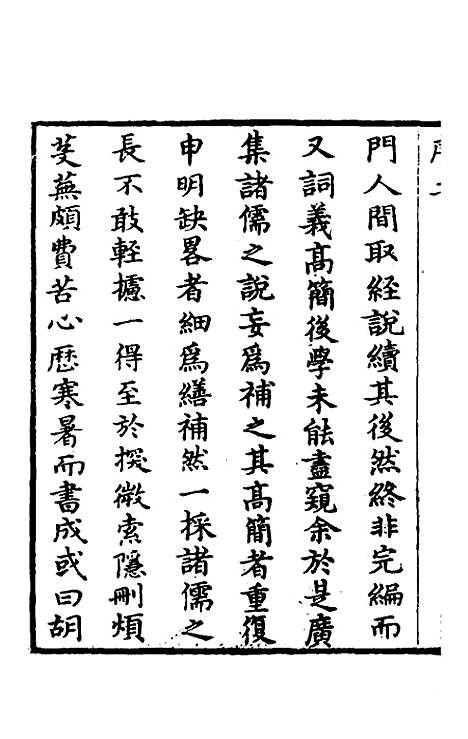 門人間取経說續其後然終非完編而
又詞義高簡後學未能盡窺余於是廣
集諸儒之說妄爲補之其高簡者重復
申明缺畧者細爲繕補然一採諸儒之
長不敢輕攄一得至於探微索隱刪煩
芟蕪頗費苦心歷寒暑而書成或曰胡